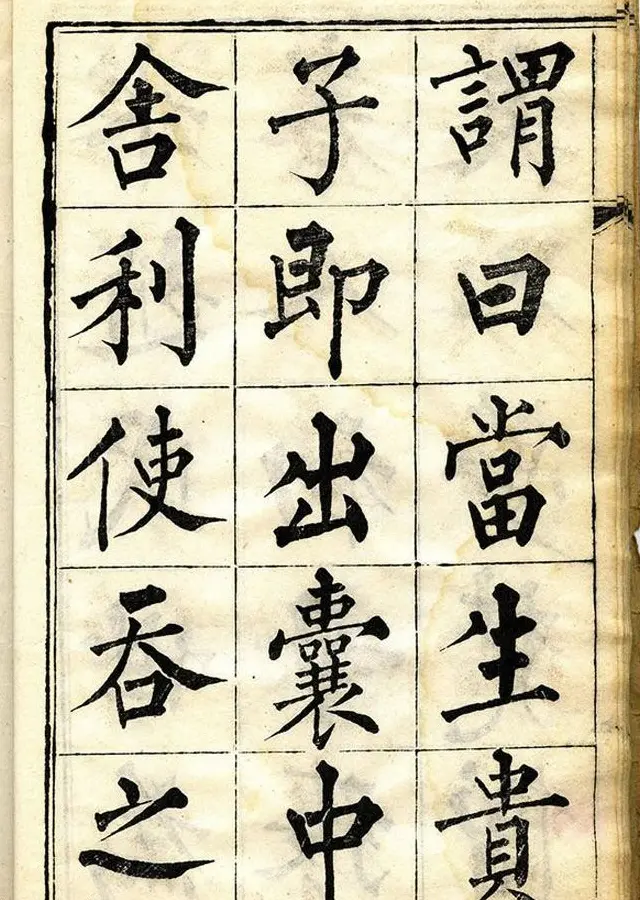 謂曰當生貴
子即出囊中
舍利使吞之